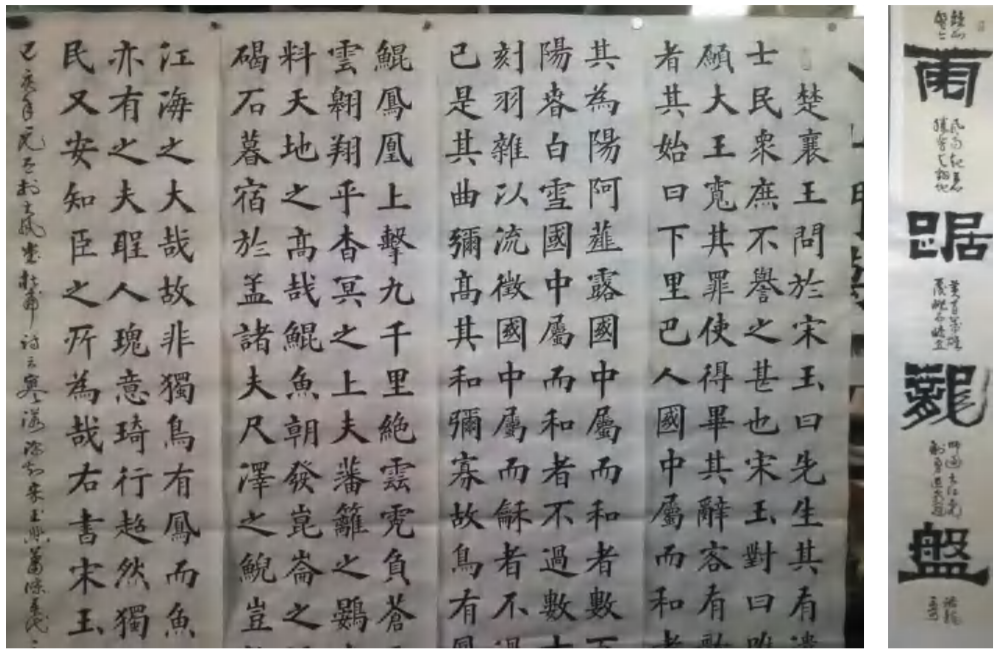 楚襄王問於宋玉曰先生其有遺
士民衆庶不譽之甚也宋玉對曰唯
願大王寬其罪使得畢其辭客有歌
者其始曰下里巴人國中屬而和者
其為陽阿薤露國中屬而和者數百
陽春白雪國中屬而和者不過數十
刻羽雜以流徵國中屬而龢者不過
已是其曲彌高其和彌寡故鳥有鳳
鯤鳳凰上擊九千里絕雲霓負蒼
雲翱翔乎杳冥之上夫藩籬之鷃
料天地之高哉鯤魚朝發崑崙之
碣石暮宿於孟諸夫尺澤之鯢豈
江海之大哉故非獨鳥有鳳而魚
亦有之夫聖人瑰意琦行超然獨
民又安知臣之所為哉右書宋玉
己亥年
虎踞龍盤